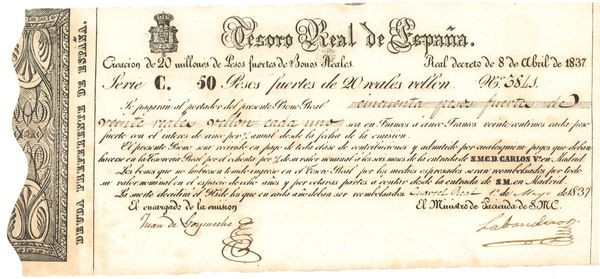 DEUDA PREFERENTE DE ESPAÑA.
Tesoro Real de España.
Creacion de 20 millones de Pesos fuertes de Bonos Reales.
Real decreto de 8 de Abril de 1837
Serie C. 50 Pesos fuertes de 20 reales vellon.
Se pagarán al portador del presente Bono Real cincuenta pesos fuertes de
veinte reales vellon cada uno sea en Francos a cinco Francos veinte centimos cada peso
fuerte con el interes de cinco por % anual desde la fecha de la emision.
El presente Bono sera recivido en pago de toda clase de contribuciones y admitido por cualesquiera pagos que deban
hacerse en la Tesoreria Real por el ochenta por % de su valor nominal a los seis meses de la entrada de S.M.C.D. CARLOS Vº. en Madrid
Los bonos que no hubiesen tenido ingreso en el Tesoro Real por los medios espresados seran reembolsados por todo
su valor nominal en el espacio de ocho años y por octavas partes a contar desde la entrada de S.M. en Madrid.
La suerte decidirá el Bono la que en cada año deban ser reembolsadas. Real de Mayo de 1837
El encargado de la emision
El Ministro de Hacienda de S.M.C.
Juan de
Labandero